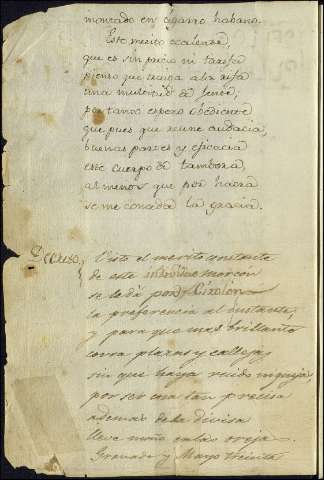 montado en cigarro habano.
Este merito ecselente,
que es sin precio ni tarifa
pienso que venga a la rifa
una multitud de gente;
por tanto espero obediente
que pues que reune audacia,
buenas partes y eficacia
este cuerpo de tambora,
al menos que por haora
se me conceda la gracia.
Decreto, Visto el merito constante
de este individuo marcon
se le dá por
la preferencia al instante,
y para que mas brillante
corra plazas y callejas
sin que haya ruido ni quejas,
por ser cosa tan precisa
ademas de la divisa
lleve moño en las orejas.
Granada y Mayo treinta